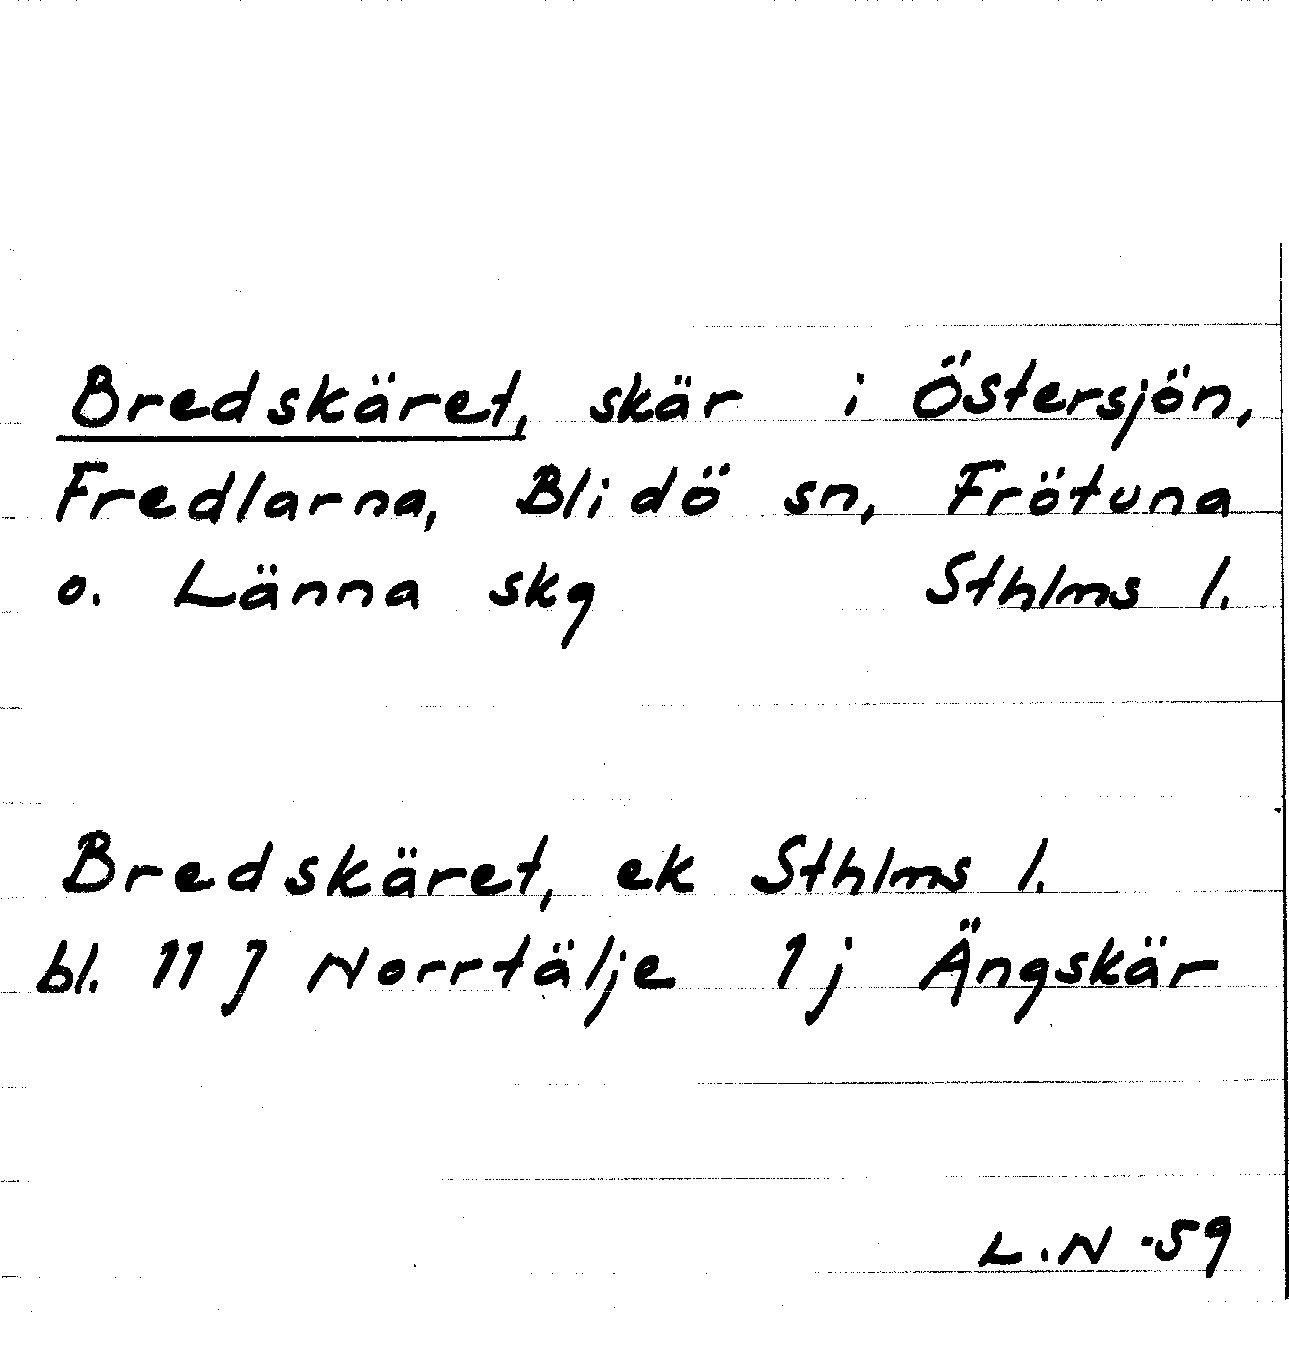 Bredskäret, skär i Östersjön,
Fredlarna, Blidö sn, Frötuna
o. Länna skg Sthlms l.
Bredskäret, ek Sthlms l.
bl. 11 J Norrtälje 1 j Ängskär
L.N -59